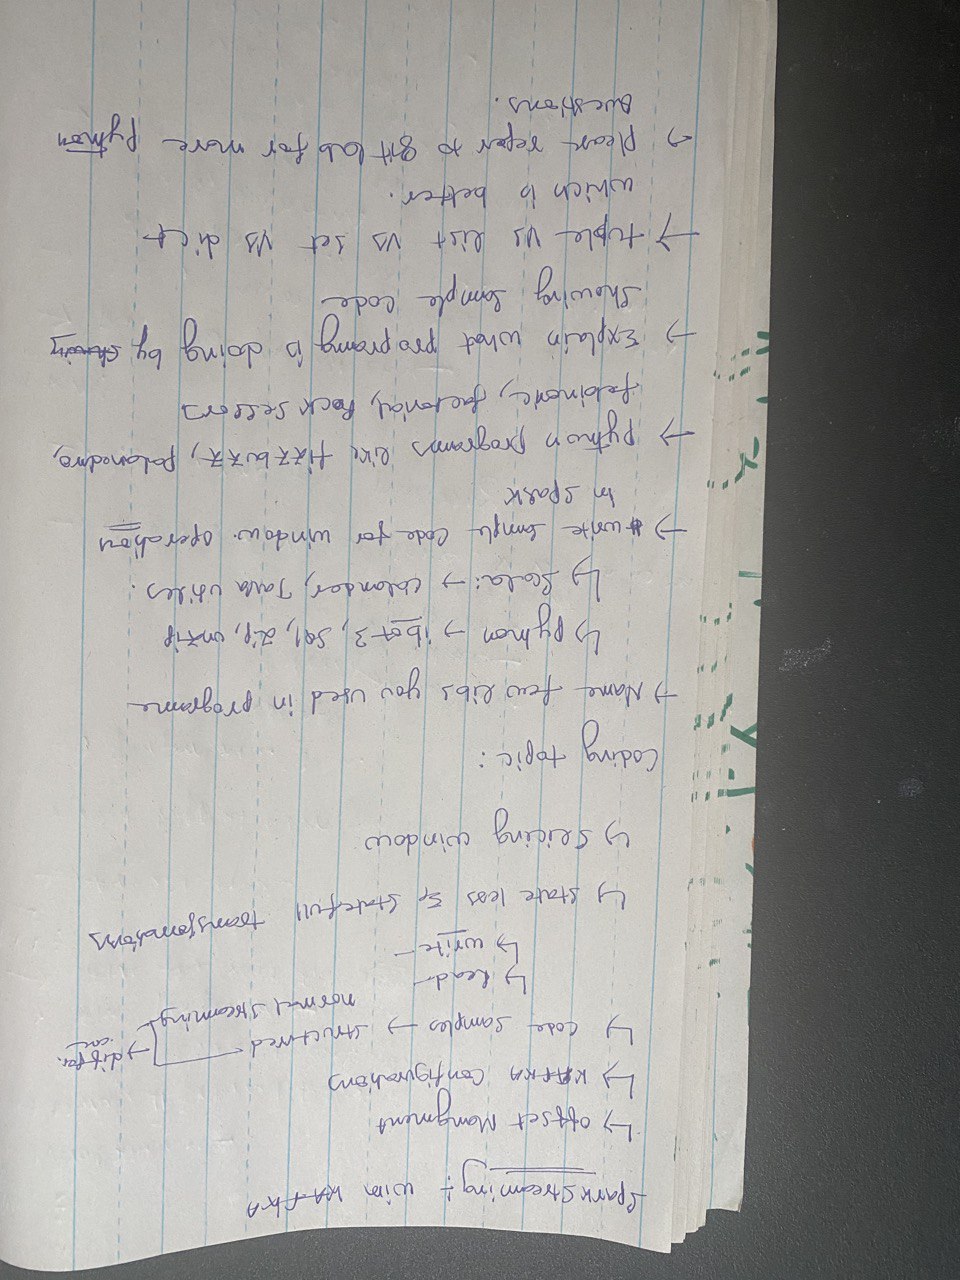 Spark Streaming :- with KAFKA
↳ Offset Mangment
↳ KAFKA Configurations
↳ Code Samples → Structured → differ.
normal Streaming
↳ Read
↳ write
↳ State less & Statefull transformations
↳ Slicing window
Coding topic :
→ Name few libs you used in programe
↳ python → boto3, SQL, zip, unzip
↳ Scala: → Calander, Java utiles.
→ write sample Code for window operation
in Spark
→ python programs like fizzbuzz, palanedro,
febineric, factorial, Rock Sessors
→ Explain what programg is doing by
Showing Sample Code
→ tuple vs list vs set vs dict
which is better.
→ Please refer to gitlab for more Python
Questions.